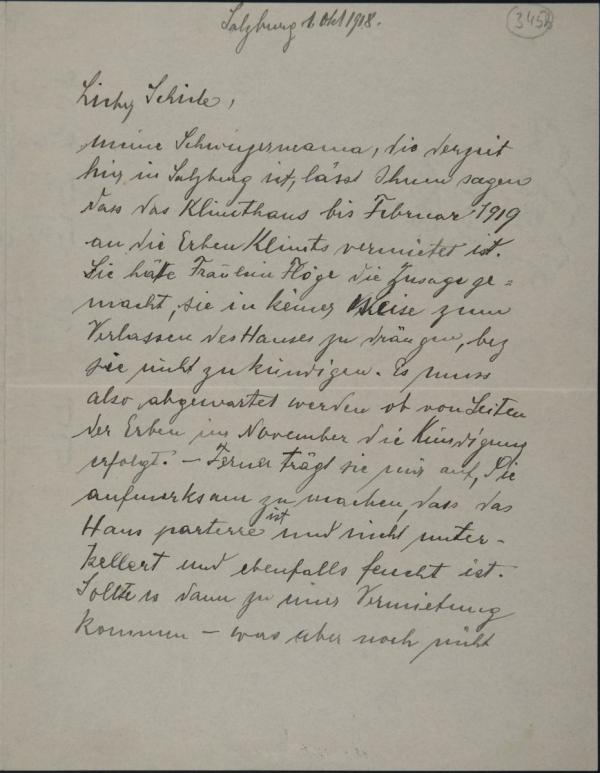 Salzburg 1. Okt 1918.
345b
Lieber Schiele,
meine Schwiegermama, die derzeit
hier in Salzburg ist, lässt Ihnen sagen
dass das Klimthaus bis Februar 1919
an die Erben Klimts vermietet ist.
Sie hätte Fräulein Flöge die Zusage ge=
macht, sie in keiner Weise zum
Verlassen des Hauses zu drängen, bez
sie nicht zu kündigen. Es muss
also abgewartet werden ob von Seiten
der Erben im November die Kündigung
erfolgt. – Ferner trägt sie mir auf, Sie
aufmerksam zu machen, dass das
Haus parterre ist und nicht unter-
kellert und ebenfalls feucht ist.
Sollte es dann zu einer Vermietung
kommen – was aber noch nicht